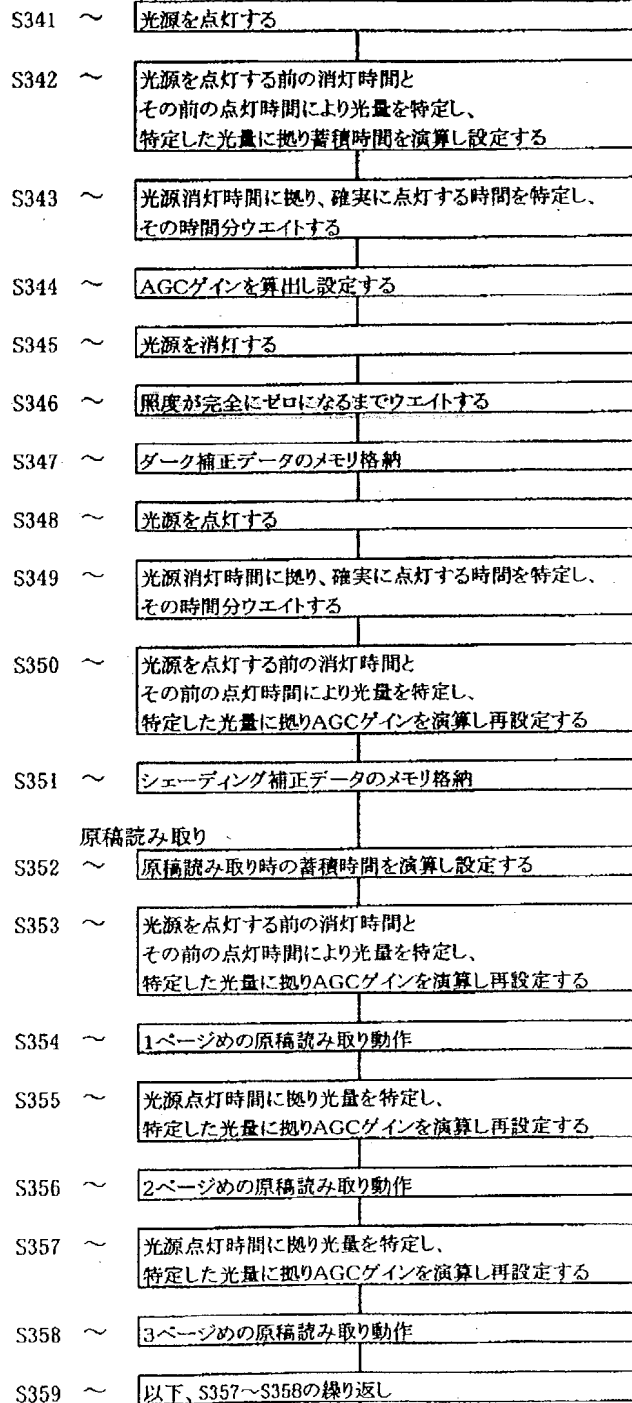 S341 ～ 光源を点灯する
S342 ～ 光源を点灯する前の消灯時間と
その前の点灯時間により光量を特定し、
特定した光量に拠り蓄積時間を演算し設定する
S343 ～ 光源消灯時間に拠り、確実に点灯する時間を特定し、
その時間分ウエイトする
S344 ～ AGCゲインを算出し設定する
S345 ～ 光源を消灯する
S346 ～ 照度が完全にゼロになるまでウエイトする
S347 ～ ダーク補正データのメモリ格納
S348 ～ 光源を点灯する
S349 ～ 光源消灯時間に拠り、確実に点灯する時間を特定し、
その時間分ウエイトする
S350 ～ 光源を点灯する前の消灯時間と
その前の点灯時間により光量を特定し、
特定した光量に拠りAGCゲインを演算し再設定する
S351 ～ シェーディング補正データのメモリ格納
原稿読み取り
S352 ～ 原稿読み取り時の蓄積時間を演算し設定する
S353 ～ 光源を点灯する前の消灯時間と
その前の点灯時間により光量を特定し、
特定した光量に拠りAGCゲインを演算し再設定する
S354 ～ 1ページめの原稿読み取り動作
S355 ～ 光源点灯時間に拠り光量を特定し、
特定した光量に拠りAGCゲインを演算し再設定する
S356 ～ 2ページめの原稿読み取り動作
S357 ～ 光源点灯時間に拠り光量を特定し、
特定した光量に拠りAGCゲインを演算し再設定する
S358 ～ 3ページめの原稿読み取り動作
S359 ～ 以下、S357～S358の繰り返し